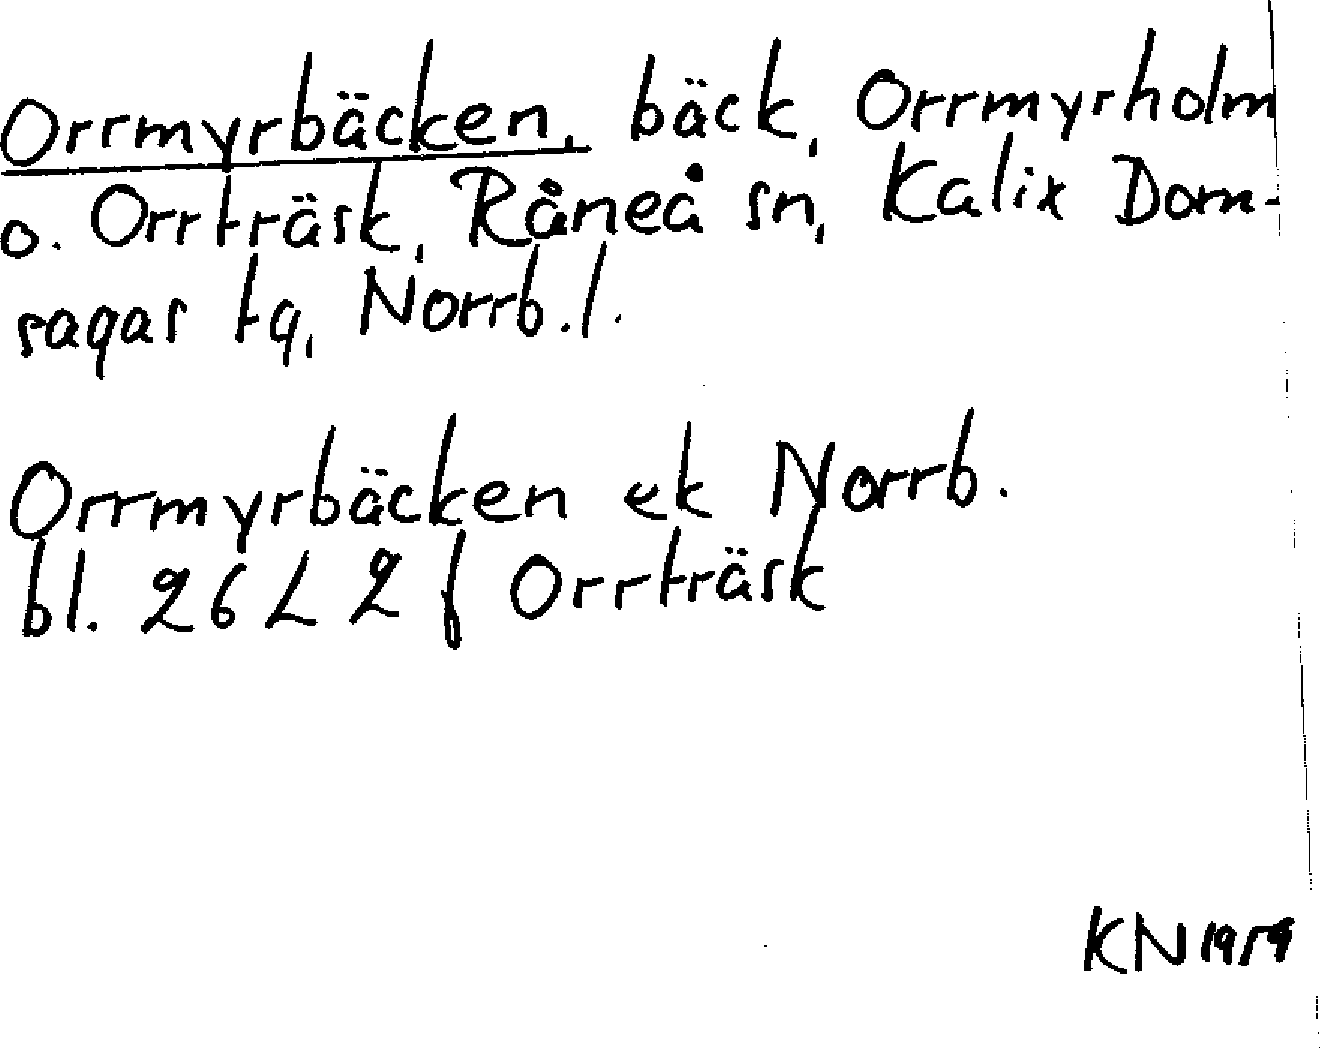 Orrmyrbäcken, bäck, Orrmyrholm
o. Orrträsk, Råneå sn, Kalix Dom-
sagas tg, Norrb. l.
Orrmyrbäcken ek Norrb.
bl. 26 L 2 f Orrträsk
KN 1959